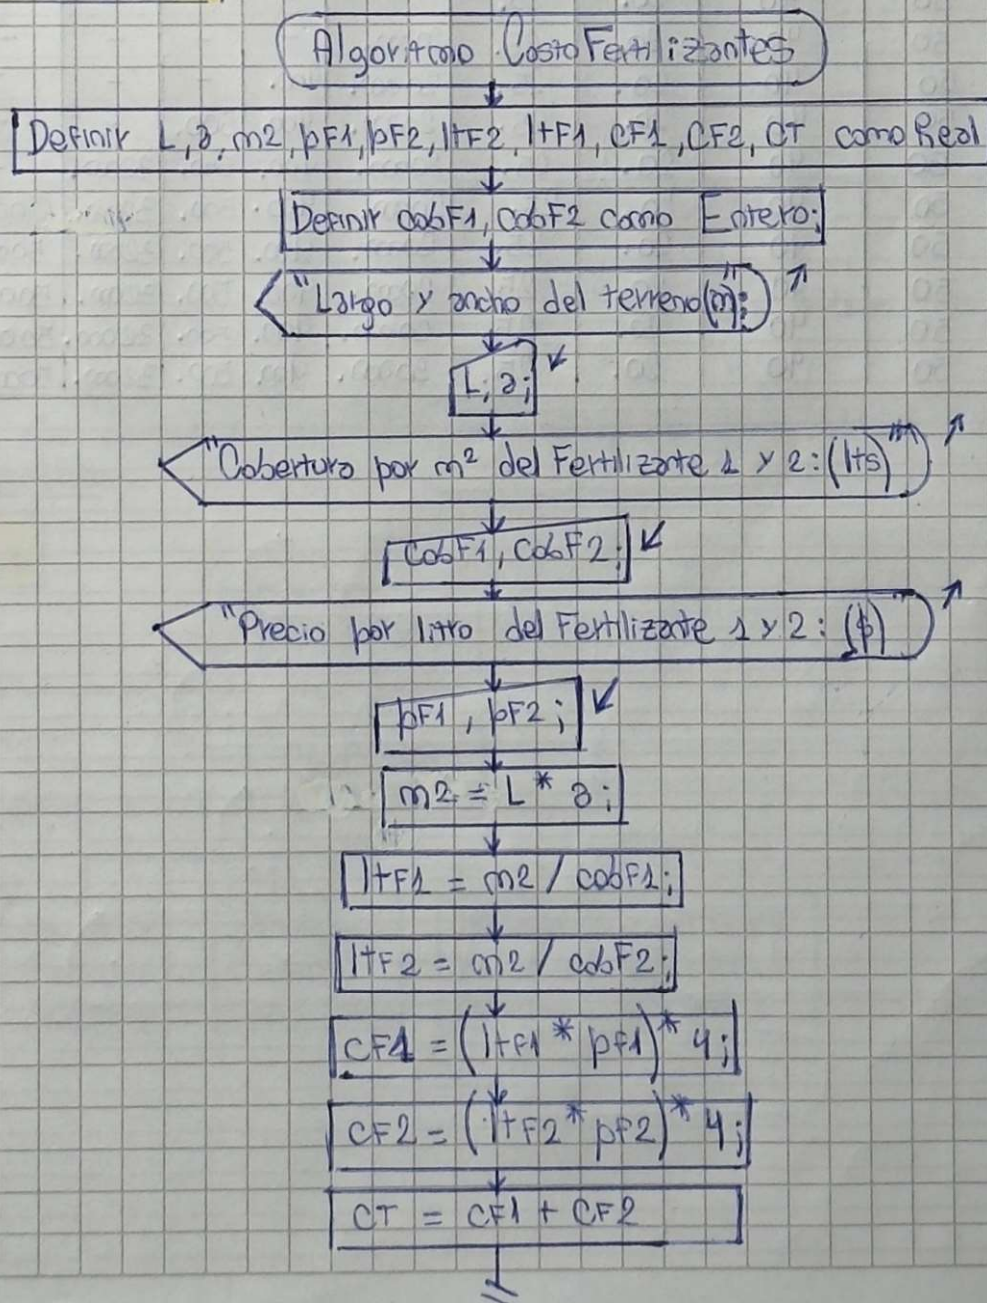 Algoritmo CostoFertilizantes
Definir L, a, m2, pF1, pF2, ltF2, ltF1, CF1, CF2, CT como Real
Definir cobF1, cobF2 como Entero;
"Largo y ancho del terreno(m)";
L, a;
"Cobertura por m² del Fertilizante 1 y 2: (lts)"
cobF1, cobF2;
"Precio por litro del Fertilizante 1 y 2: ($)"
pF1, pF2;
m2 = L * a;
ltF1 = m2 / cobF1;
ltF2 = m2 / cobF2;
CF1 = (ltF1 * pF1) * 4;
CF2 = (ltF2 * pF2) * 4;
CT = CF1 + CF2